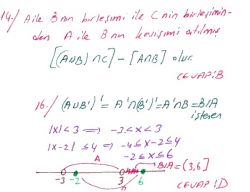 14/ A ile B nin birleşimi ile C nin birleşimin-
den A ile B nin kesişimi atılmış
[(A∪B)∩C] - [A∩B] olur
CEVAP:B
16/ (A∪B')' = A'∩(B')' = A'∩B = B\A
istenen
|x|<3 ⟹ -3<x<3
|x-2| ≤ 4 ⟹ -4≤x-2≤4
-2≤x≤6
A
B\A = (3,6]
-3 -2 3 6
CEVAP:D